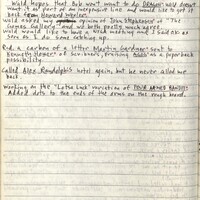 Wald hopes that Bob won't want to do DRAGON. Wald doesn't
want it as part of an inexpensive line and would like to get it
back from Howard Wexler.
Wald asked me opinion of Joan Stephenson of "The
Games Gallery" and we both pretty much agree.
Wald would like to have a Wald meeting and I said OK as
soon as I do some catching up.
Rcd. a carbon of a letter Martin Gardner sent to
Kennethy Heuer of Scribners, praising as a paperback
possibility.
Called Alex Randolph's hotel again, but he never called me
back.
Working on the "Lotsa Luck" variation of FOUR ARMED BANDIT.
Added dots to the ends of the arms on the rough board.